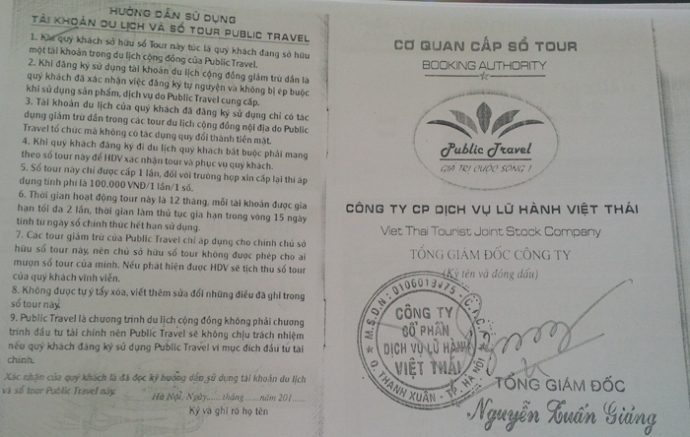 HƯỚNG DẪN SỬ DỤNG
TÀI KHOẢN DU LỊCH VÀ SỔ TOUR PUBLIC TRAVEL
1. Khi quý khách sở hữu sổ Tour này tức là quý khách đang sở hữu
một tài khoản trong du lịch cộng đồng của Public Travel.
2. Khi đăng ký sử dụng tài khoản du lịch cộng đồng giảm trừ dần là
quý khách đã xác nhận việc đăng ký tự nguyện và không bị ép buộc
khi sử dụng sản phẩm, dịch vụ do Public Travel cung cấp.
3. Tài khoản du lịch của quý khách đã đăng ký sử dụng chỉ có tác
dụng giảm trừ dần trong các tour du lịch cộng đồng nội địa do Public
Travel tổ chức mà không có tác dụng quy đổi thành tiền mặt.
4. Khi quý khách đăng ký đi du lịch quý khách bắt buộc phải mang
theo sổ tour này để HDV xác nhận tour và phục vụ quý khách.
5. Sổ tour này chỉ được cấp 1 lần, đối với trường hợp xin cấp lại thì áp
dụng tính phí là 100.000 VNĐ/1 lần/1 sổ.
6. Thời gian hoạt động tour này là 12 tháng, mỗi tài khoản được gia
hạn tối đa 2 lần, thời gian làm thủ tục gia hạn trong vòng 15 ngày
tính từ ngày sổ chính thức hết hạn sử dụng.
7. Các tour giảm trừ của Public Travel chỉ áp dụng cho chính chủ sở
hữu sổ tour này, nên chủ sở hữu sổ tour không được phép cho ai
mượn sổ tour của mình. Nếu phát hiện được HDV sẽ tịch thu sổ tour
của quý khách vĩnh viễn.
8. Không được tự ý tẩy xóa, viết thêm sửa đổi những điều đã ghi trong
sổ tour này.
9. Public Travel là chương trình du lịch cộng đồng không phải chương
trình đầu tư tài chính nên Public Travel sẽ không chịu trách nhiệm
nếu quý khách đăng ký sử dụng Public Travel vì mục đích đầu tư tài
chính.
Xác nhận của quý khách là đã đọc kỹ hướng dẫn sử dụng tài khoản du lịch
và sổ tour Public Travel này.
Hà Nội, Ngày...... tháng ......năm 201....
Ký và ghi rõ họ tên
CƠ QUAN CẤP SỔ TOUR
BOOKING AUTHORITY
Public Travel
GIÁ TRỊ CUỘC SỐNG !
CÔNG TY CP DỊCH VỤ LỮ HÀNH VIỆT THÁI
Viet Thai Tourist Joint Stock Company
TỔNG GIÁM ĐỐC CÔNG TY
(Ký tên và đóng dấu)
M.S.D.N: 0106013475 - C.T.C.P
CÔNG TY
CỔ PHẦN
DỊCH VỤ LỮ HÀNH
VIỆT THÁI
Q. THANH XUÂN - TP. HÀ NỘI
TỔNG GIÁM ĐỐC
Nguyễn Xuân Giảng